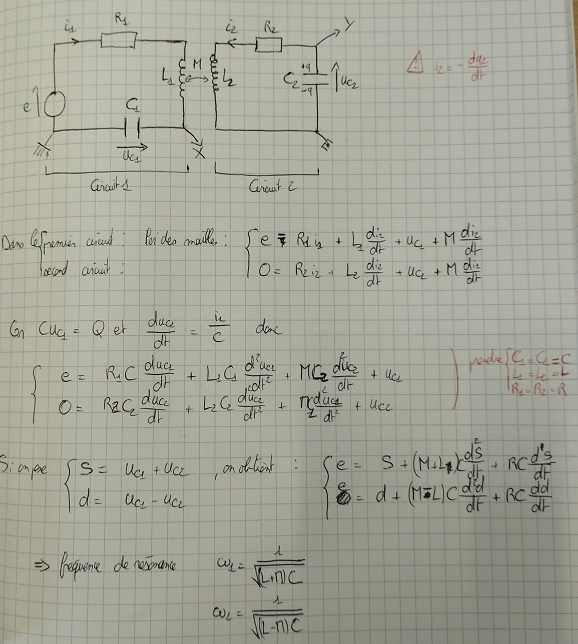 i₁ R₁ i₂ R₂ Y
M
L₁ L₂ C₂ +q -q u_C2
e C₁
u_C1 X
Circuit 1 Circuit 2
⚠ i₂ = - dq₂/dt
Dans le premier circuit : loi des mailles : { e = R₁ i₁ + L₁ di₁/dt + u_C1 + M di₂/dt
second circuit : 0 = R₂ i₂ + L₂ di₂/dt + u_C2 + M di₁/dt
Or C u_C1 = Q et du_C1/dt = i₁/C donc
{ e = R₁ C du_C1/dt + L₁ C₁ d²u_C1/dt² + M C₂ d²u_C2/dt + u_C1
0 = R₂ C₂ du_C2/dt + L₂ C₂ du_C2/dt² + M d²u_C1/dt² + u_C2
prendre { C₁ = C₂ = C
L₁ = L₂ = L
R₁ = R₂ = R
Si on pose { S = u_C1 + u_C2 , on obtient : { e = S + (M+L)C d²S/dt + RC dS/dt
d = u_C1 - u_C2 e = d + (M-L)C d²d/dt + RC dd/dt
⇒ fréquence de résonance ω₁ = 1/√((L+M)C)
ω₂ = 1/√((L-M)C)